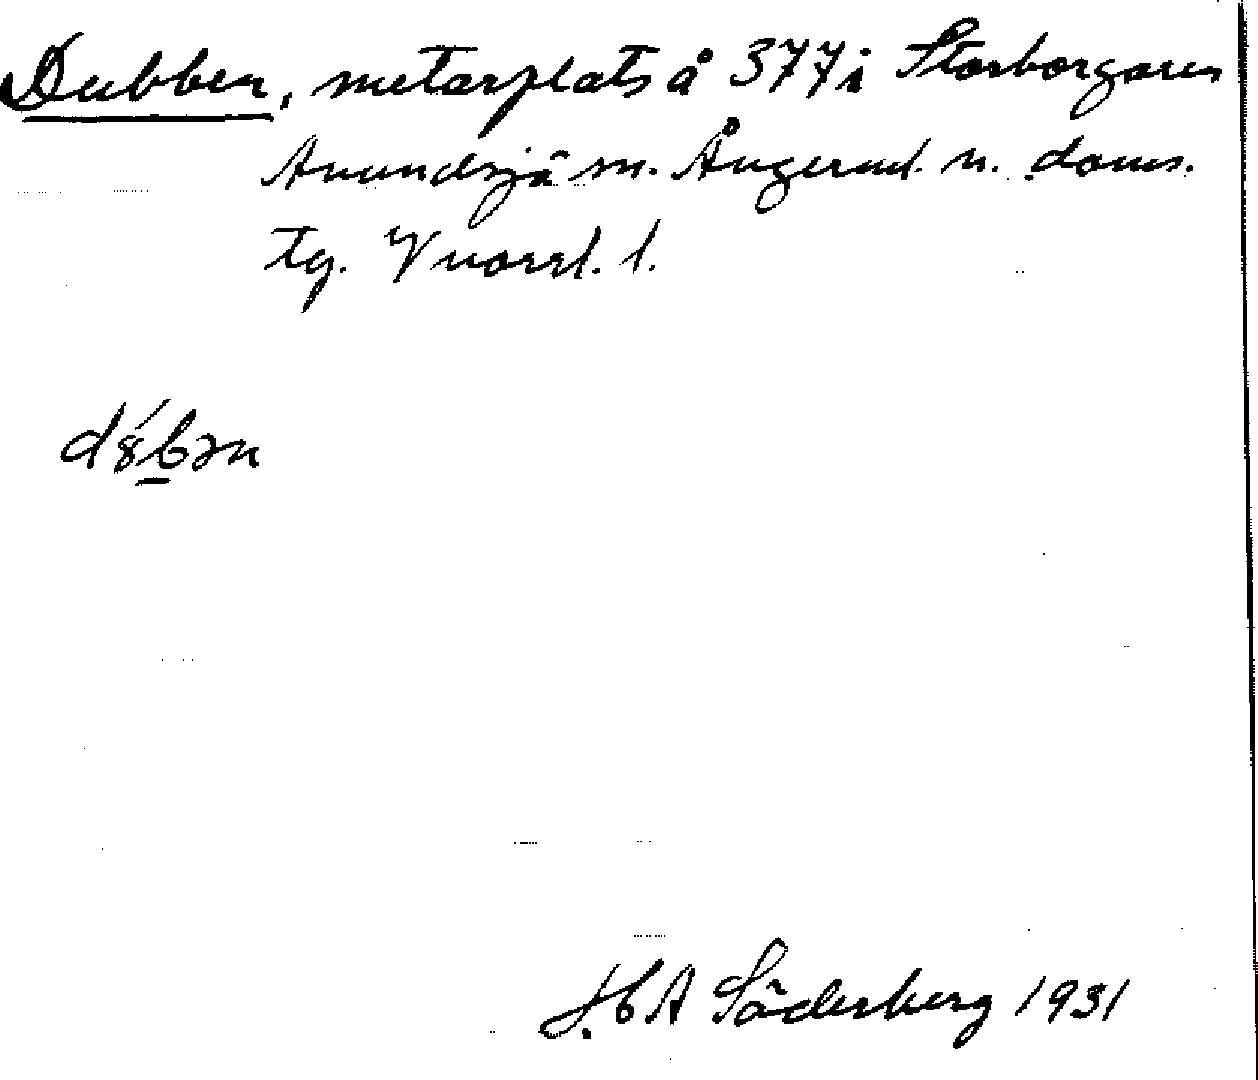 Dubben, metarplats å 377 i Storborgaren
Anundsjö sn. Ångerml. n. doms.
tg. V norrl. l.
dȣ́bən
H.A Söderberg 1931